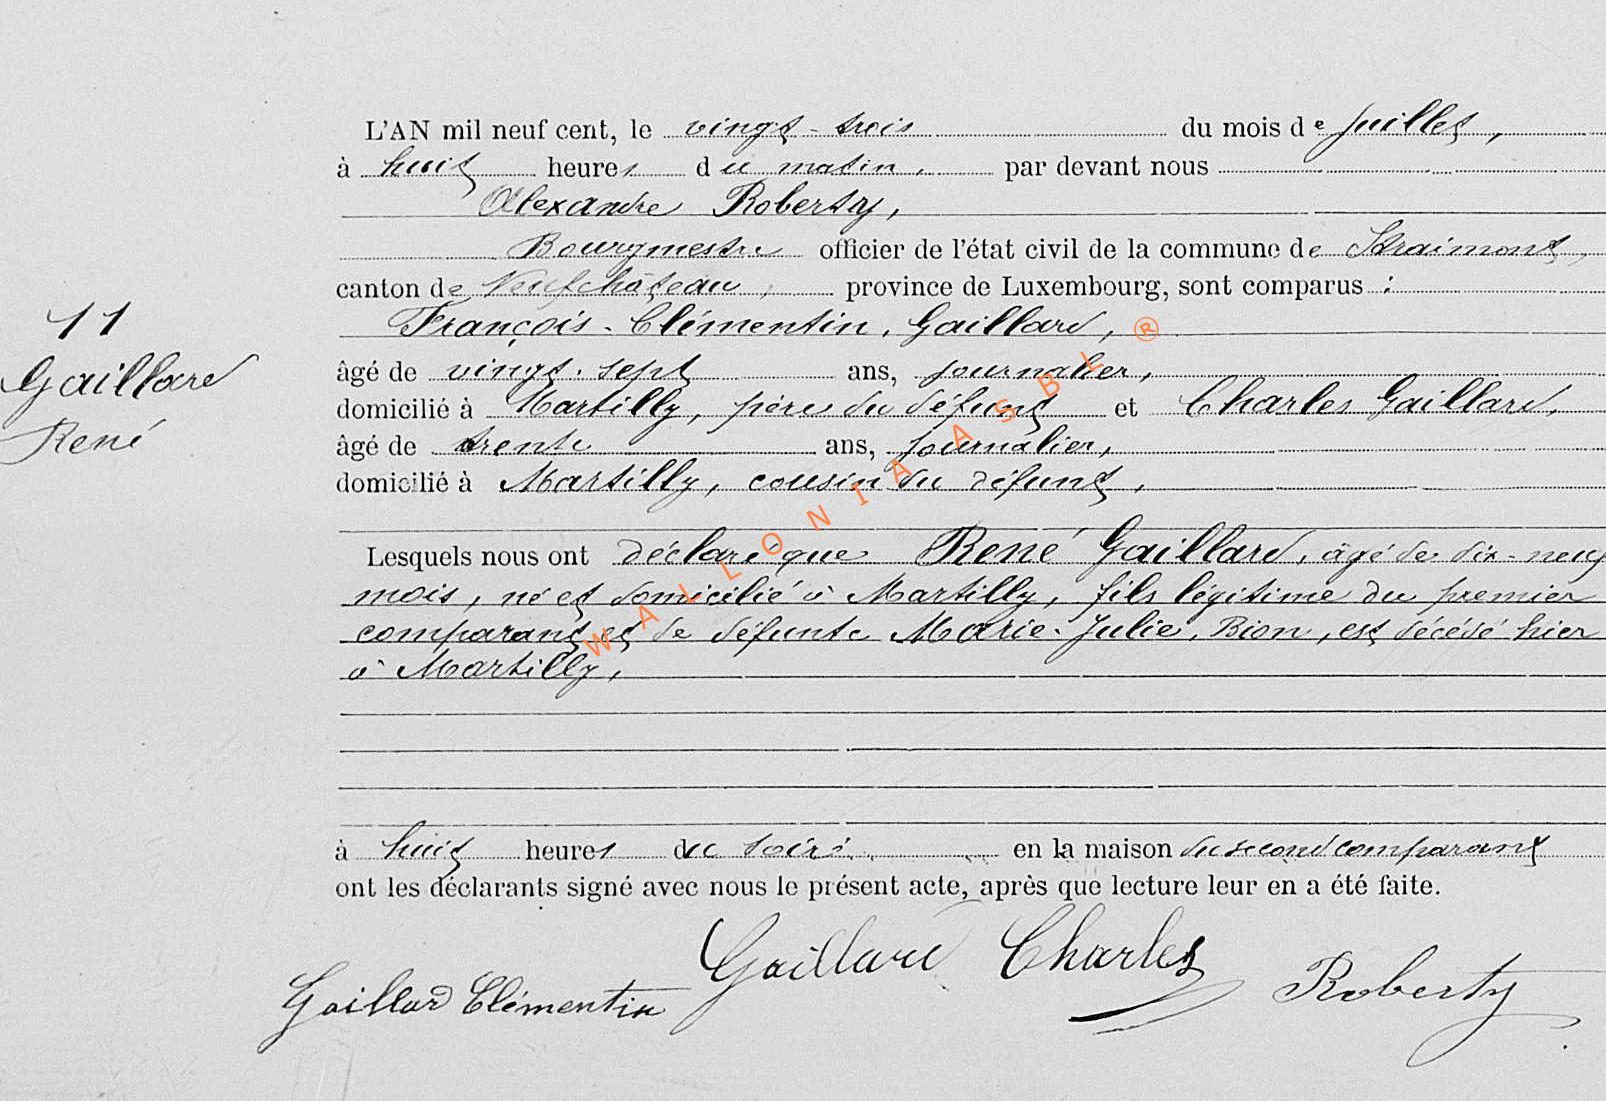 L'AN mil neuf cent, le vingt-trois du mois de juillet,
à huit heures du matin, par devant nous
Alexandre Roberty,
Bourgmestre officier de l'état civil de la commune de Straimont,
canton de Neufchâteau, province de Luxembourg, sont comparus :
11
François-Clémentin, Gaillard,
Gaillard
âgé de vingt-sept ans, journalier,
domicilié à Martilly, père du défunt et Charles Gaillard,
René
âgé de trente ans, journalier,
domicilié à Martilly, cousin du défunt,
Lesquels nous ont déclaré que René Gaillard, âgé de dix-neuf
mois, né et domicilié à Martilly, fils légitime du premier
comparant et de défunte Marie-Julie, Bion, est décédé hier
à Martilly,
à huit heures du soir, en la maison du second comparant
ont les déclarants signé avec nous le présent acte, après que lecture leur en a été faite.
Gaillard Clémentin Gaillard Charles Roberty
WALLONIA ASBL ®